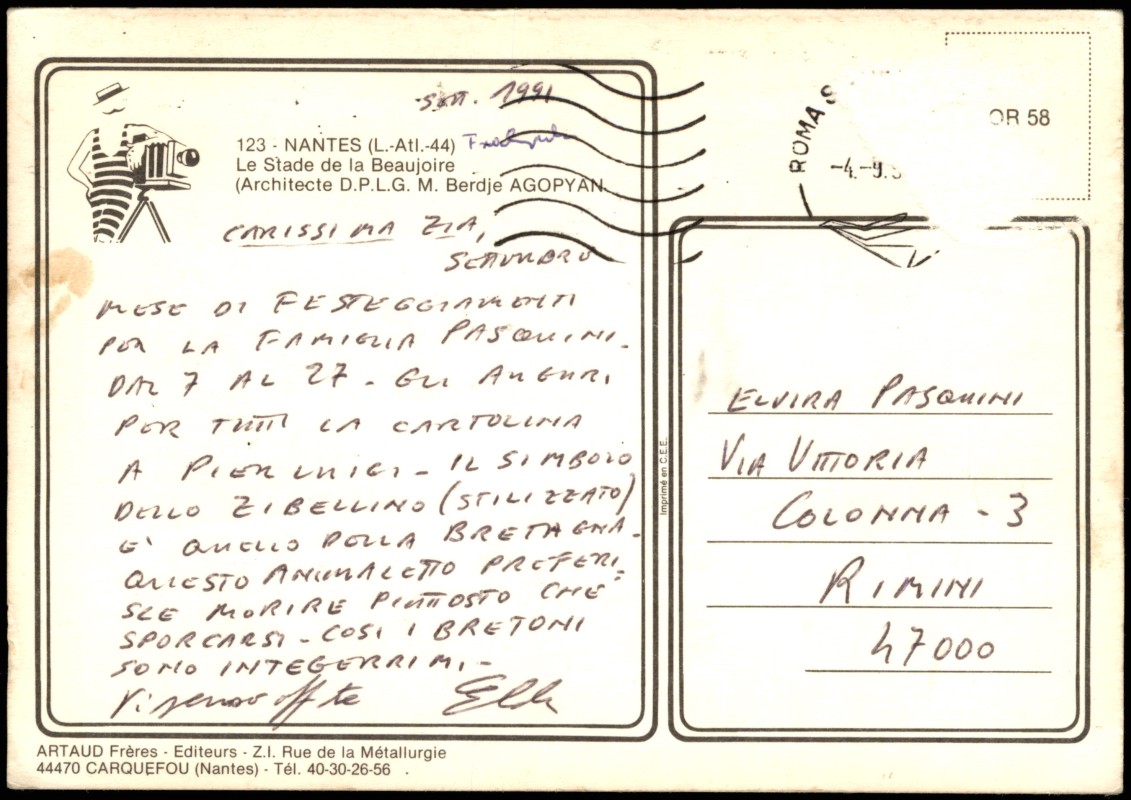 SETT. 1991
123 - NANTES (L.-Atl.-44)
Le Stade de la Beaujoire
(Architecte D.P.L.G. M. Berdje AGOPYAN
CARISSIMA ZIA,
SETTEMBRE
MESE DI FESTEGGIAMENTI
PER LA FAMIGLIA PASQUINI.
DAL 7 AL 27 - GLI AUGURI
PER TUTTI LA CARTOLINA
A PIERLUIGI - IL SIMBOLO
DELLO ZIBELLINO (STILIZZATO)
E' QUELLO DELLA BRETAGNA.
QUESTO ANIMALETTO PREFERI-
SCE MORIRE PIUTTOSTO CHE
SPORCARSI - COSI I BRETONI
SONO INTEGERRIMI -
Vi penso
ARTAUD Frères - Editeurs - Z.I. Rue de la Métallurgie
44470 CARQUEFOU (Nantes) - Tél. 40-30-26-56
Imprimé en C.E.E.
ROMA
-4.-9.9
OR 58
ELVIRA PASQUINI
VIA VITTORIA
COLONNA - 3
RIMINI
47000